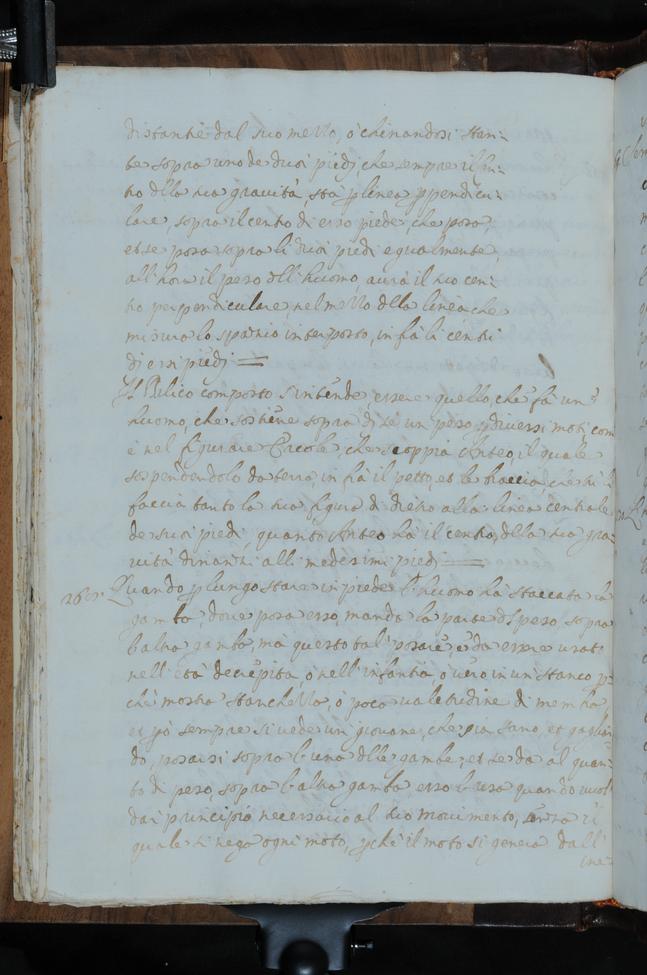 distantie dal suo mezzo, ò chinandosi stan-
te sopra uno de duoi piedi, che sempre il cen-
tro dlla sua gravità, stà p linea ppendicu-
lare, sopra il centro di esso piede che posa,
et se posa sopra li duoi piedi egualmente,
all'hora il peso dll'huomo, avrà il suo cen-
tro perpendiculare, nel mezzo dlla linea che
misura lo spatio interposto, in frà li centri
di essi piedi
Il Bilico composto s'intende, essere quello, che fà un
huomo, che sostiene sopra di se un peso p diversi moti com
è nel figurare Ercole, che scoppia Anteo, il quale
sospendendolo da terra, in frà il petto, et le braccia, che li
faccia tanto la sua figura di dietro alla linea centrale
de suoi piedi, quanto Anteo hà il centro, dlla sua gra-
vità dinanzi alli medesimi piedi
Quando p lungo stare in piede l'huomo hà staccata la
gamba, dove posa esso, manda la parte dl peso sopra
l'altra gamba, mà questo tal posare, è da essere usato
nell'età decrepita, ò nell'infantia, ò vero in un stanco p-
che mostra stanchezza, ò poca valetudine di membra
et pò sempre si vede un giovane, che sia sano, et gagliar
do, posarsi sopra l'una dlle gambe, et se dà al quan-
to di peso, sopra l'altra gamba esso l'usa quando vuol
dar principio necessario al suo movimento, senza il
quale si nega ogni moto, pchè il moto si genera dall'
ine-